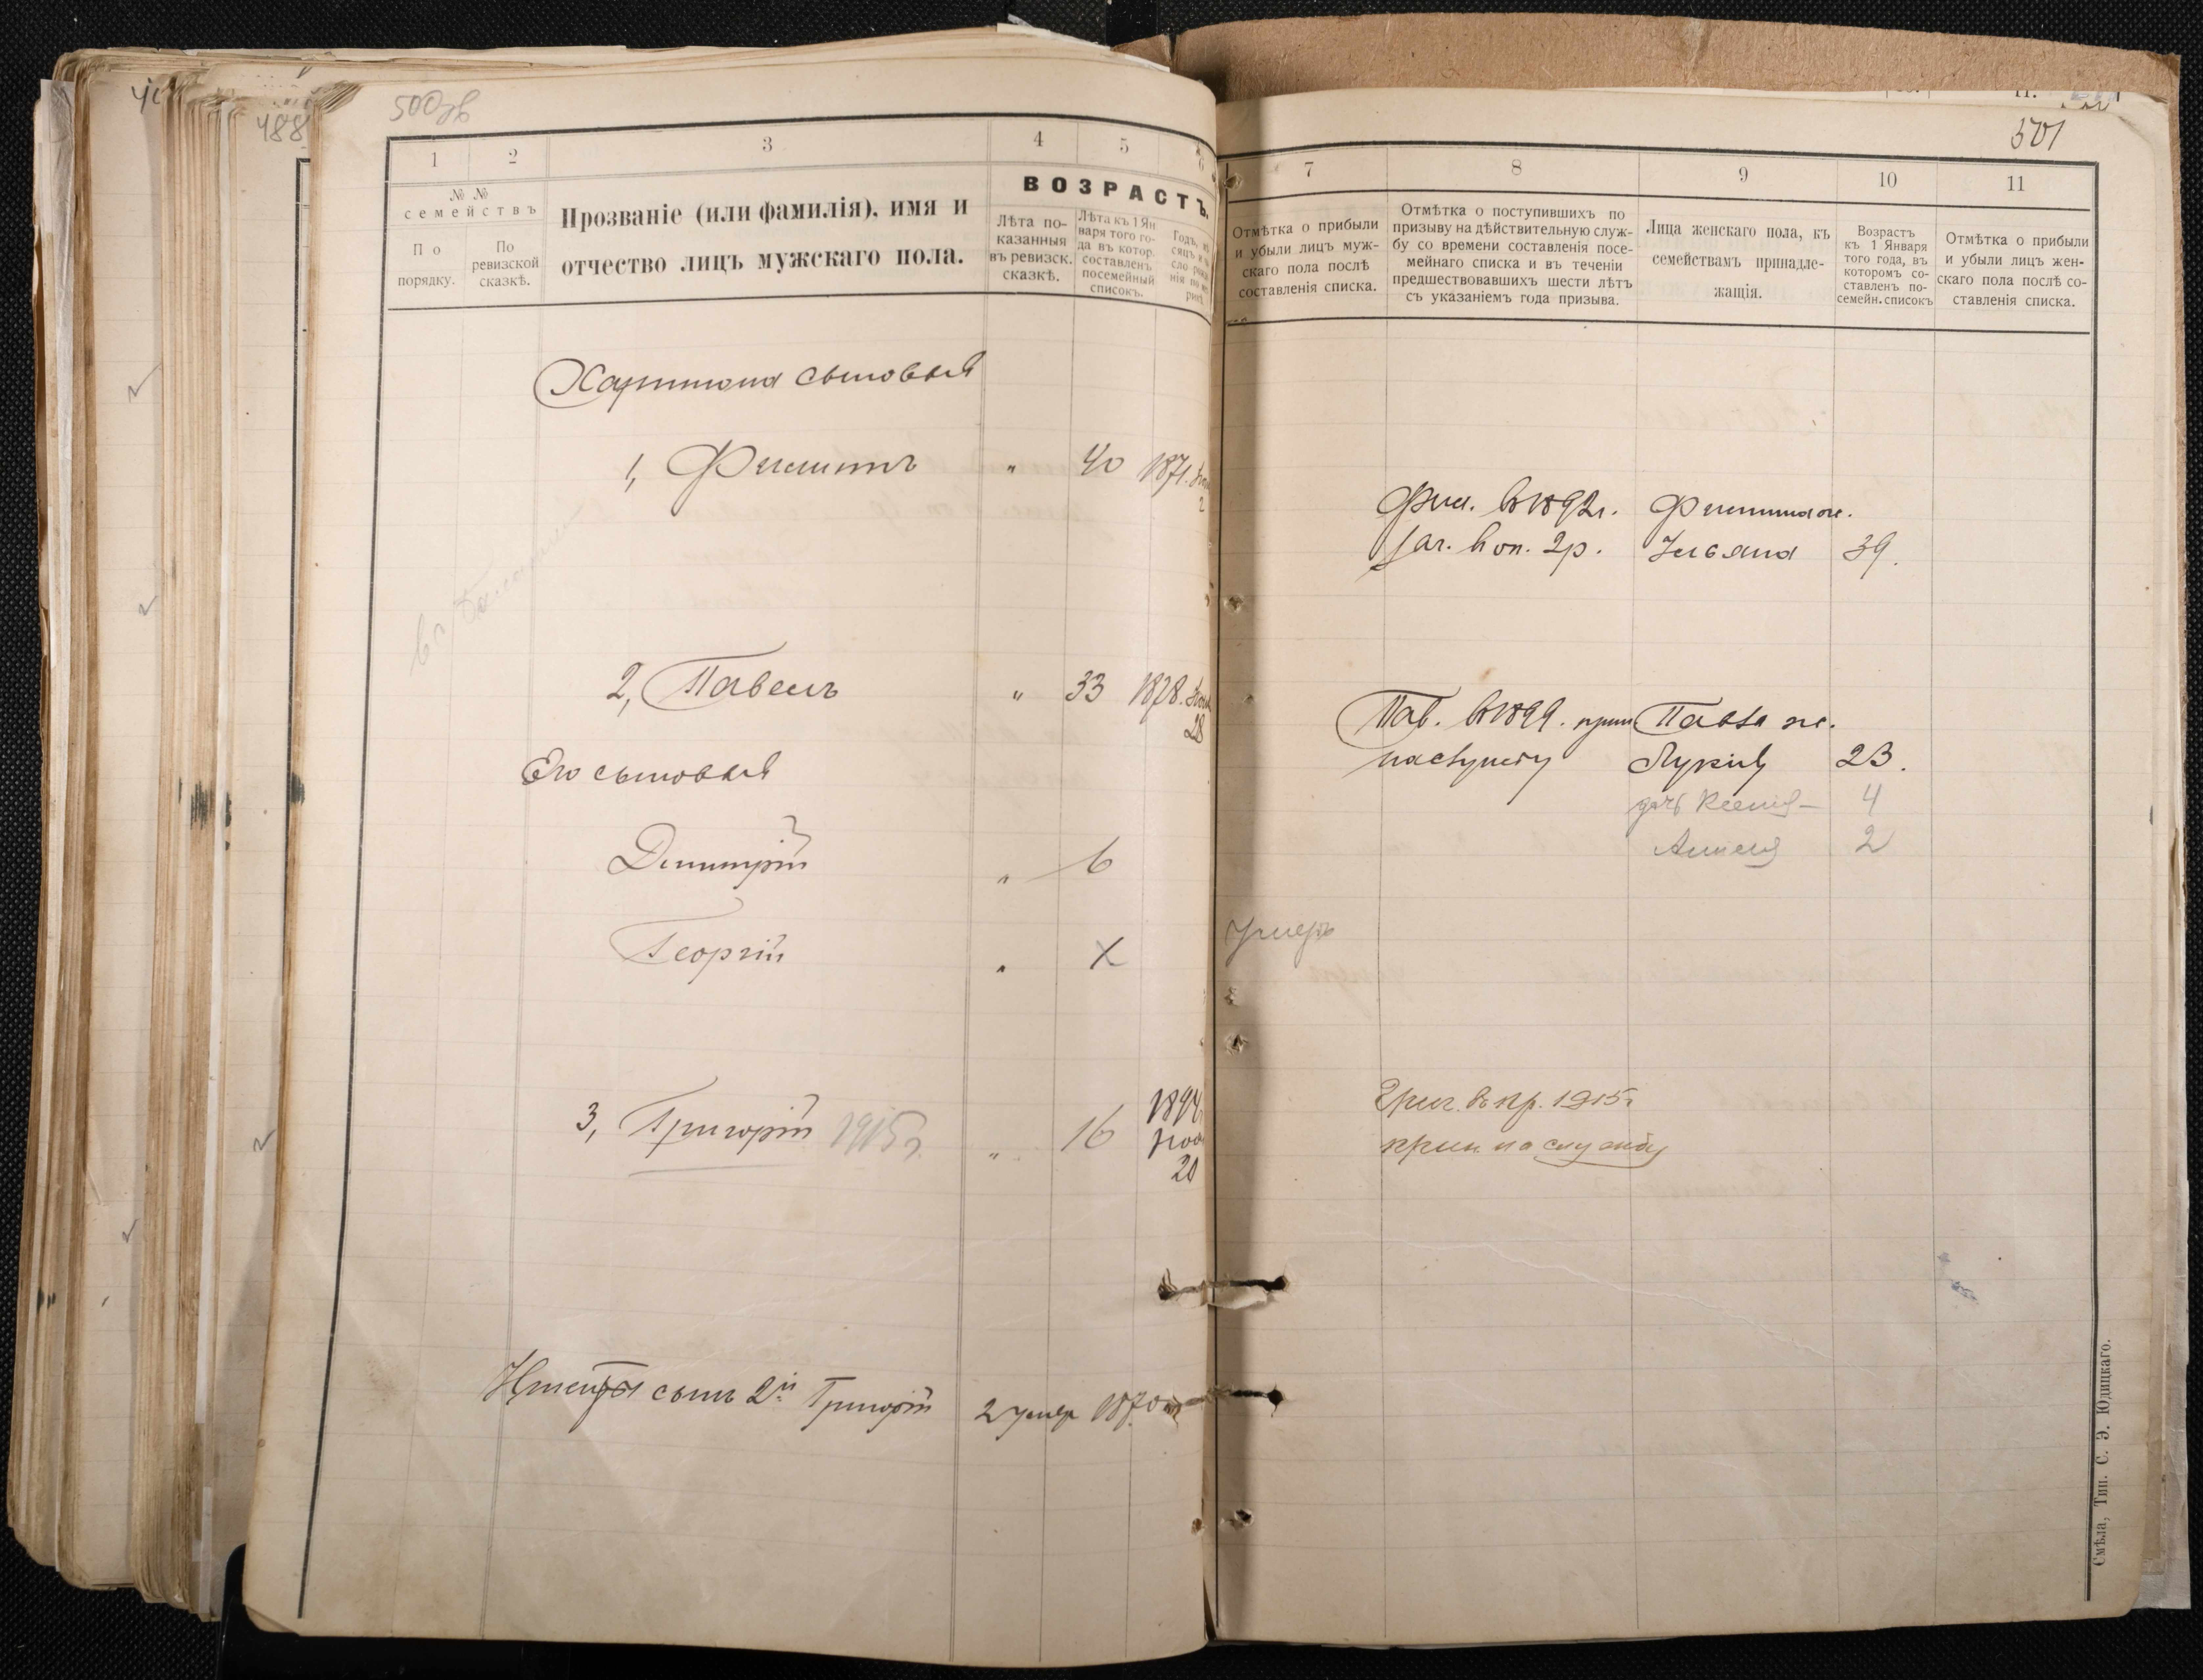 500 зв
488
1
2
3
4
5
6
№ №
семействъ
По
порядку.
По
ревизской
сказкѣ.
Прозваніе (или фамилія), имя и
отчество лицъ мужскаго пола.
ВОЗРАСТЪ.
Лѣта по-
казанныя
въ ревизск.
сказкѣ.
Лѣта къ 1 Ян
варя того го-
да въ котор.
составленъ
посемейный
списокъ.
Харитона сыновья
1, Филиппъ " 40 1871.
2
2, Павелъ " 33 1878.
28
Его сыновья
Димитрій " 6
Георгій "
3, Григорій 1915 г. " 16 1894
20
сынъ 2й Григорій 2 умер 1870
501
7
8
9
10
11
Отмѣтка о прибыли
и убыли лицъ муж-
скаго пола послѣ
составленія списка.
Отмѣтка о поступившихъ по
призыву на дѣйствительную служ-
бу со времени составленія посе-
мейнаго списка и въ теченіи
предшествовавшихъ шести лѣтъ
съ указаніемъ года призыва.
Лица женскаго пола, къ
семействамъ принадле-
жащія.
Возрастъ
къ 1 Января
того года, въ
которомъ со-
ставленъ по-
семейн. списокъ
Отмѣтка о прибыли
и убыли лицъ жен-
скаго пола послѣ со-
ставленія списка.
Фил. въ 1892 г. Филиппа ж.
зач. в оп. 2 р. Ульяна 39.
Пав. въ 1899. прин Павла ж.
на службу Лукія 23.
дочь Ксенія - 4
2
Умеръ
Григ. въ пр. 1915 г
прин. на службу
Смѣла, Тип. С. Э. Юдицкаго.